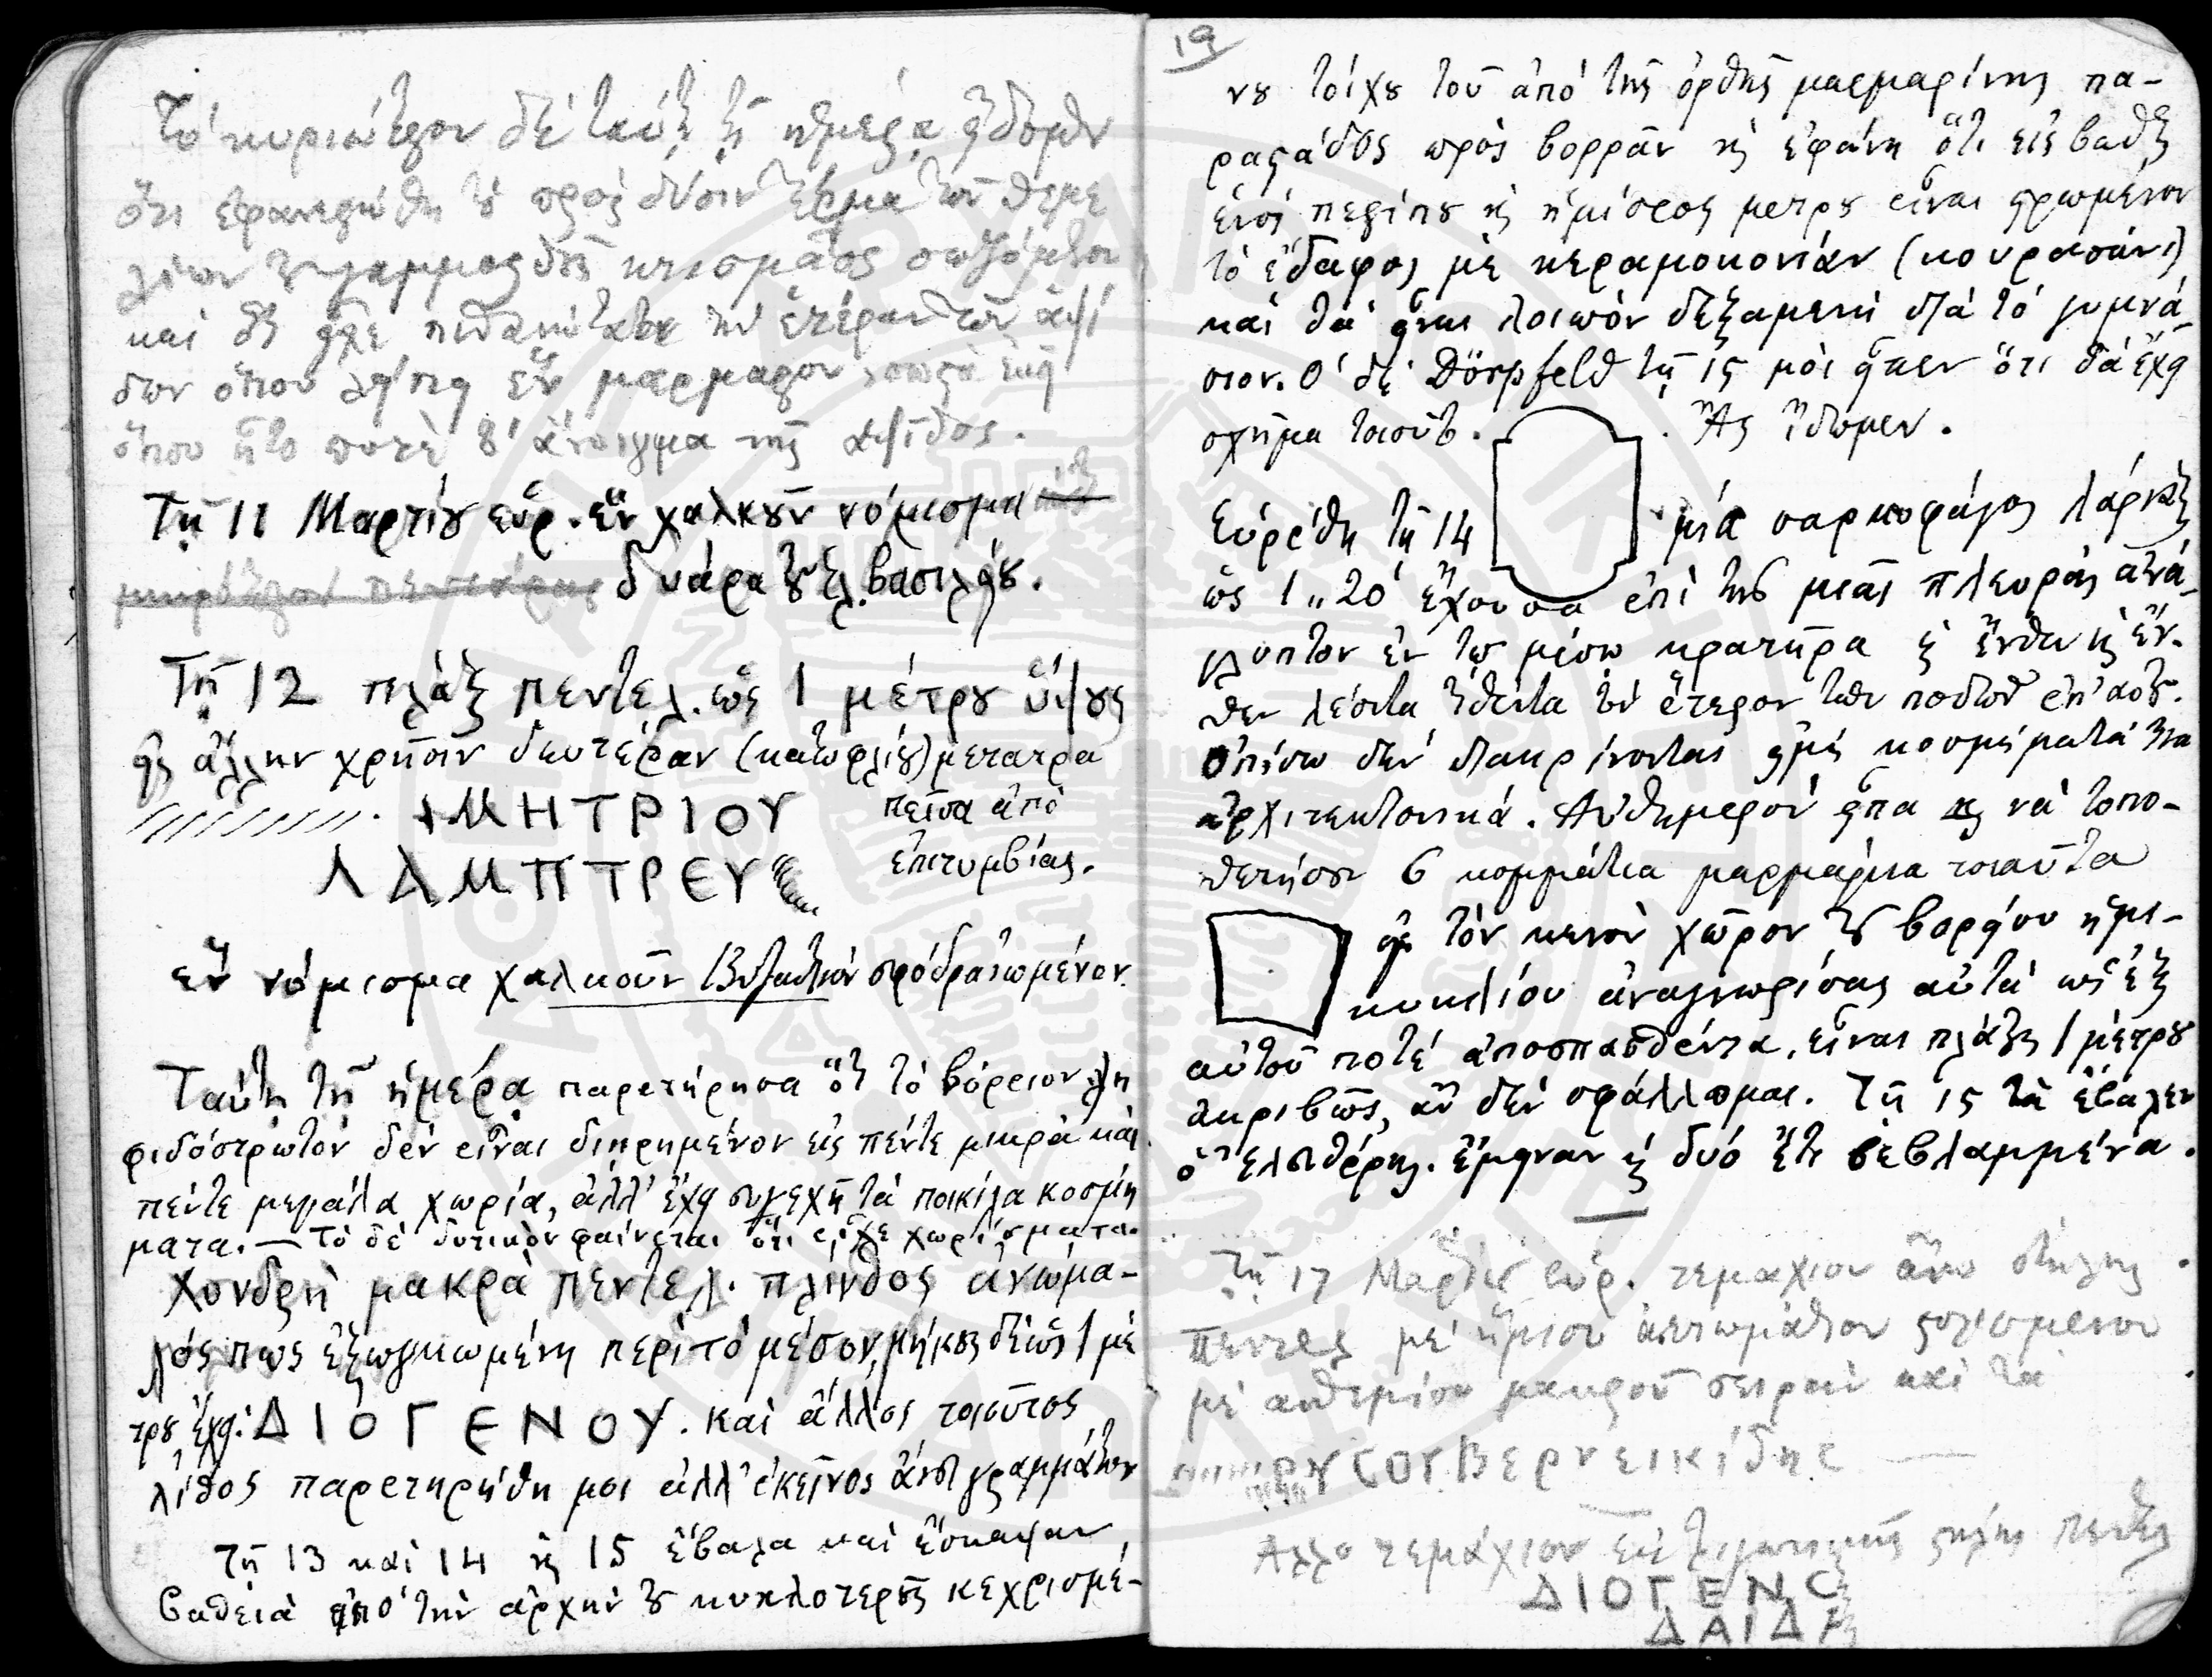 Τὸ κυριώτερον δὲ ταύτῃ τῇ ἡμέρᾳ εἴδομεν
ὅτι ἐφανερώθη τὸ πρὸς δύσιν τέρμα τῶν θεμε
λίων κτίσματος σωζόμενον
καὶ εἶχε πιθανώτατα τὴν ἑτέραν τῶν ἁψί
δων ὅπου λείπει ἓν μάρμαρον
ὅπου ἦτο ποτὲ τὸ ἄνοιγμα τῆς ἁψῖδος.
Τῇ 11 Μαρτίου εὑρ. ἓν χαλκοῦν νόμισμα
δυάρα τοῦ ἑλ. βασιλείου.
Τῇ 12 πλὰξ πεντελ. ὡς 1 μέτρου ὕψους
εἰς ἄλλην χρῆσιν δευτέραν (κατωφλίου) μετατρα
ΜΗΤΡΙΟΥ πεῖσα ἀπὸ
ΛΑΜΠΤΡΕΥ ἐπιτυμβίας.
ἓν νόμισμα χαλκοῦν Βυζαντινὸν
Ταύτῃ τῇ ἡμέρᾳ παρετήρησα ὅτι τὸ βόρειον ψη
φιδόστρωτον δὲν εἶναι διῃρημένον εἰς πέντε μικρὰ καὶ
πέντε μεγάλα χωρία, ἀλλ' ἔχει συνεχῆ τὰ ποικίλα κοσμή
ματα. — Τὸ δὲ δυτικὸν φαίνεται ὅτι εἶχε χωρίσματα.
Χονδρὴ μακρὰ πεντελ. πλίνθος ἀνώμα-
λός πως ἐξωγκωμένη περὶ τὸ μέσον, μῆκος δὲ ὡς 1 μέ
τρου ἔχει: ΔΙΟΓΕΝΟΥ. καὶ ἄλλος τοιοῦτος
λίθος παρετηρήθη μοι ἀλλ' ἐκεῖνος ἄνευ γραμμάτων
Τῇ 13 καὶ 14 κ 15 ἔβαλα καὶ ἔσκαψαν
βαθειὰ ἀπὸ τὴν ἀρχὴν τοῦ κυκλοτεροῦς κεχρισμέ-
19
νου τοίχου τοῦ ἀπὸ τῆς ὀρθῆς μαρμαρίνης πα-
ραστάδος πρὸς βορρᾶν κ ἐφάνη ὅτι εἰς βάθος
ἑνὸς περίπου κ ἡμίσεος μέτρου εἶναι στρωμένον
τὸ ἔδαφος μὲ κεραμοκονίαν (κουρασάνι)
καὶ θὰ εἶναι λοιπὸν δεξαμενὴ διὰ τὸ γυμνά
σιον. Ὁ δὲ Dörpfeld τῇ 15 μοὶ εἶπεν ὅτι θὰ ἔχῃ
σχῆμα τοιοῦτο. Ἂς ἴδωμεν.
Εὑρέθη τῇ 14 μία σαρκοφάγος λάρναξ
ὡς 1,, 20 ἔχουσα ἐπὶ τῆς μιᾶς πλευρᾶς ἀνά-
γλυπτον ἐν τῷ μέσῳ κρατῆρα κ ἔνθεν κ ἔν-
θεν λέοντα τιθέντα τὸν ἕτερον τῶν ποδῶν ἐπ' αὐτοῦ.
ὀπίσω δὲν διακρίνονται εἰμὴ κοσμήματά τινα
ἀρχιτεκτονικά. Αὐθημερὸν εἶπα νὰ τοπο-
θετήσουν 6 κομμάτια μαρμάρινα τοιαῦτα
εἰς τὸν κενὸν χῶρον τοῦ βορείου ἡμι-
κυκλίου ἀναγνωρίσας αὐτὰ ὡς ἐξ
αὐτοῦ ποτὲ ἀποσπασθέντα. εἶναι πλάκες 1 μέτρου
ἀκριβῶς, ἂν δὲν σφάλλωμαι. Τῇ 15 τὰ ἔβαλεν
ὁ Ἐλευθέρης. ἔμειναν κ δυὸ ἔτι βεβλαμμένα.
Τῇ 17 Μαρτίου εὑρ. τεμάχιον ἄνω στήλης
πεντελ μὲ ἥμισυ ἀετωμάτιον
μὲ ἀνθεμίου μακροῦ σειρὰν καὶ τὰ
ΡΥΣΟΥ Βερνεικίδης
Ἄλλο τεμάχιον στήλης πεντελ
ΔΙΟΓΕΝΟ
ΔΑΙΔ